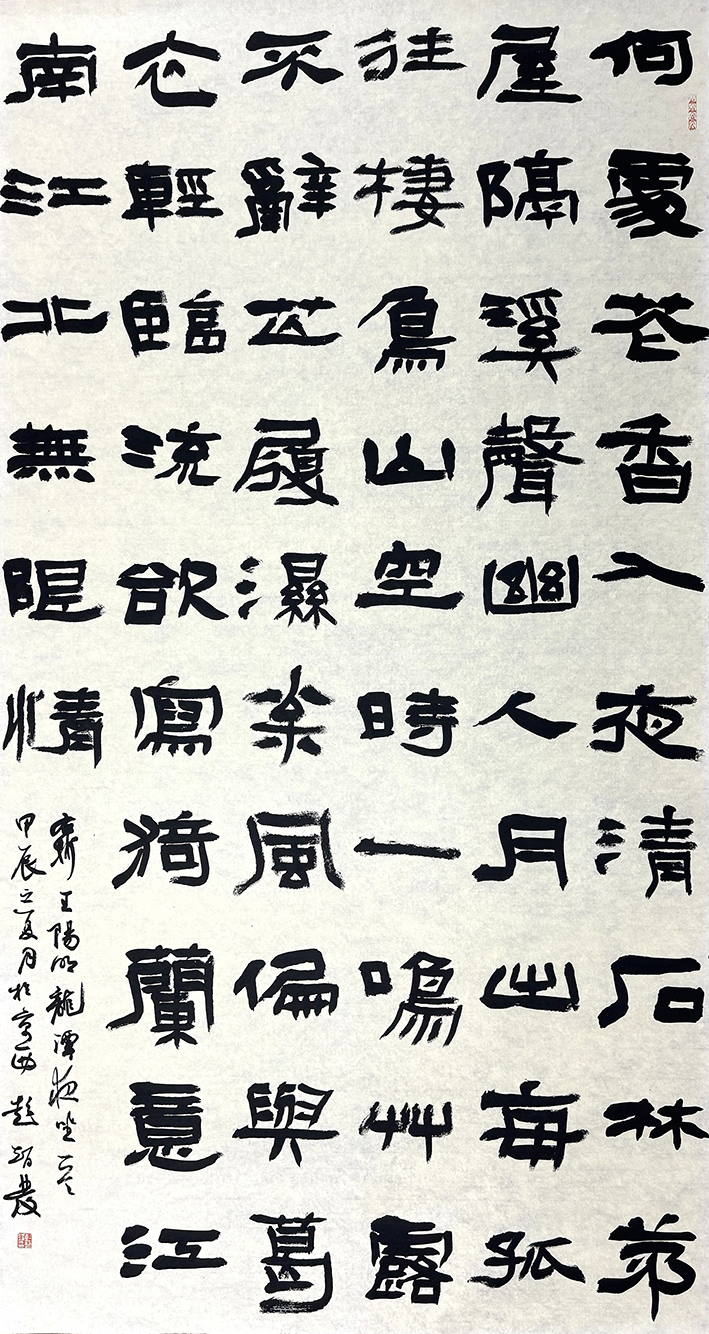 何處花香入夜清石林茅
屋隔溪聲幽人月出每孤
往棲鳥山空時一鳴艸露
不辭芒履濕松風偏與葛
衣輕臨流欲寫猗蘭意江
南江北無限情
王陽明龍潭夜坐一首
甲辰之夏月於京西